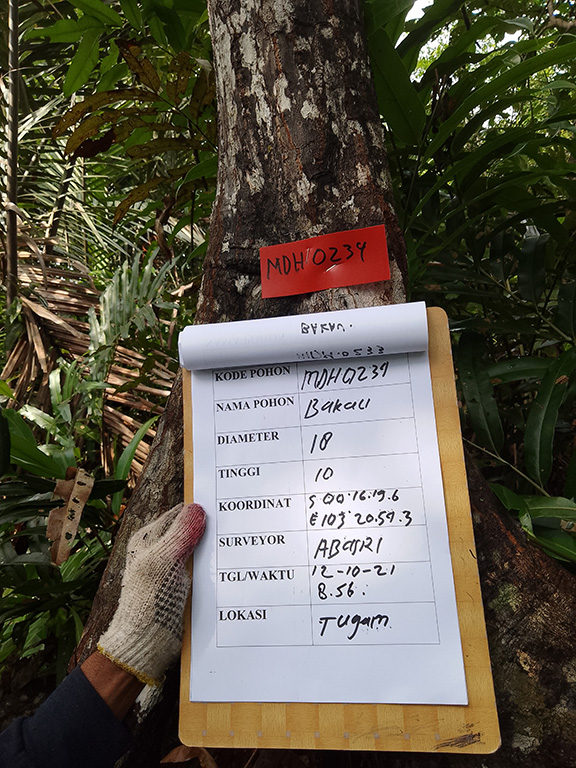 MDH 0234
BAKAU.
KODE POHON MDH0234
NAMA POHON Bakau
DIAMETER 18
TINGGI 10
KOORDINAT S 00°16.19.6
E103°20.59.3
SURVEYOR ABASRI
TGL/WAKTU 12-10-21
8.56.
LOKASI Tugam